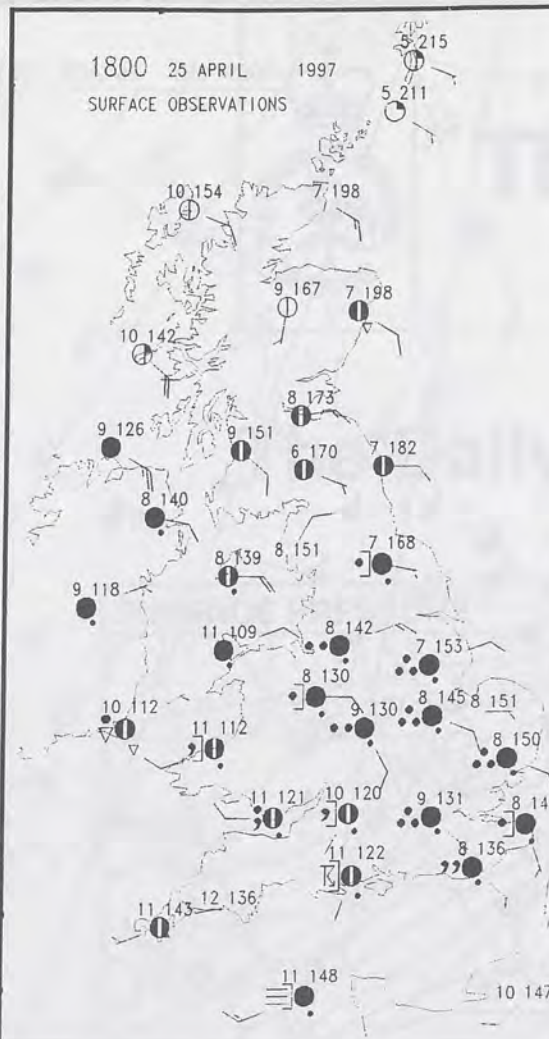 1800 25 APRIL 1997
SURFACE OBSERVATIONS
5 215
5 211
10 154
7 198
9 167
7 198
10 142
8 173
9 126
9 151
6 170
7 182
8 140
8 139
8 151
7 168
9 118
11 109
8 142
7 153
8 130
8 145
8 151
10 112
11 112
9 130
8 150
11 121
10 120
9 131
8 14
11 122
8 136
11 143
12 136
11 148
10 147